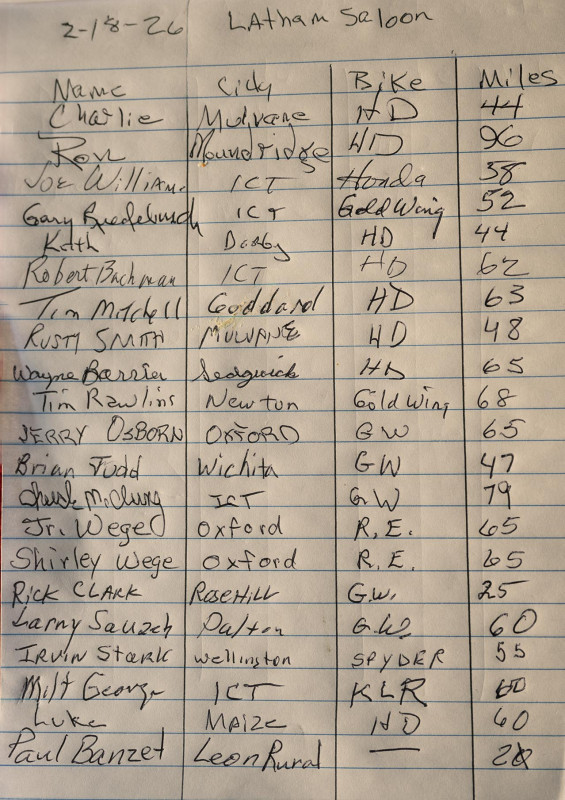 2-18-26 LAtham Saloon
Name City BiKe Miles
Charlie Mulvane HD 44
Ron Moundridge HD 96
Joe Williams ICT Honda 38
Gary ICT Gold Wing 52
Keith Derby HD 44
Robert Bachman ICT HD 62
Tim Mitchell Goddard HD 63
RUSTY SMITH MULVANE HD 48
Wayne Barrier Sedgwick HD 65
Tim Rawlins Newton Gold Wing 68
JERRY OSBORN OXFORD GW 65
Brian Judd Wichita GW 47
Chuck McClung ICT GW 79
Jr. Wege Oxford R.E. 65
Shirley Wege Oxford R.E. 65
RICK CLARK ROSEHILL G.W. 25
Larry Dalton G.W. 60
IRVIN STARK Wellington SPYDER 55
Milt George ICT KLR 60
Luke MAIZE HD 60
Paul Banzet Leon Rural —